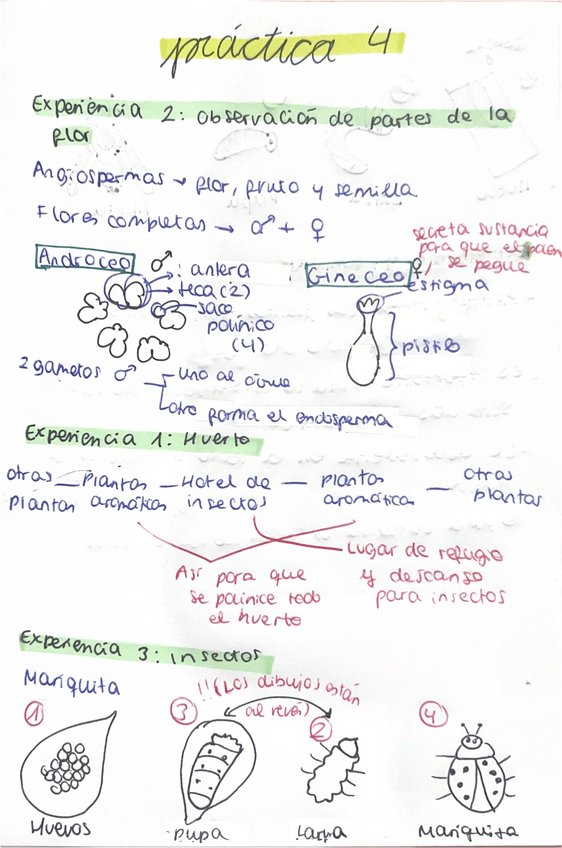 práctica 4
Experiencia 2: observación de partes de la
flor
Angiospermas → flor, fruto y semilla
Flores completas → ♂ + ♀
secreta sustancia
para que el polen
se pegue
Androceo ♂
: antera
teca (2)
saco
polínico
(4)
Gineceo ♀,
estigma
pistilo
2 gametos ♂
uno al óvulo
otro forma el endosperma
Experiencia 1: Huerto
otras plantas — plantas aromáticas — Hotel de insectos — plantas aromáticas — otras plantas
Así para que
se polinice todo
el huerto
Lugar de refugio
y descanso
para insectos
Experiencia 3: insectos
Mariquita
!! (Los dibujos están
al revés)
1 3 2 4
Huevos pupa larva Mariquita